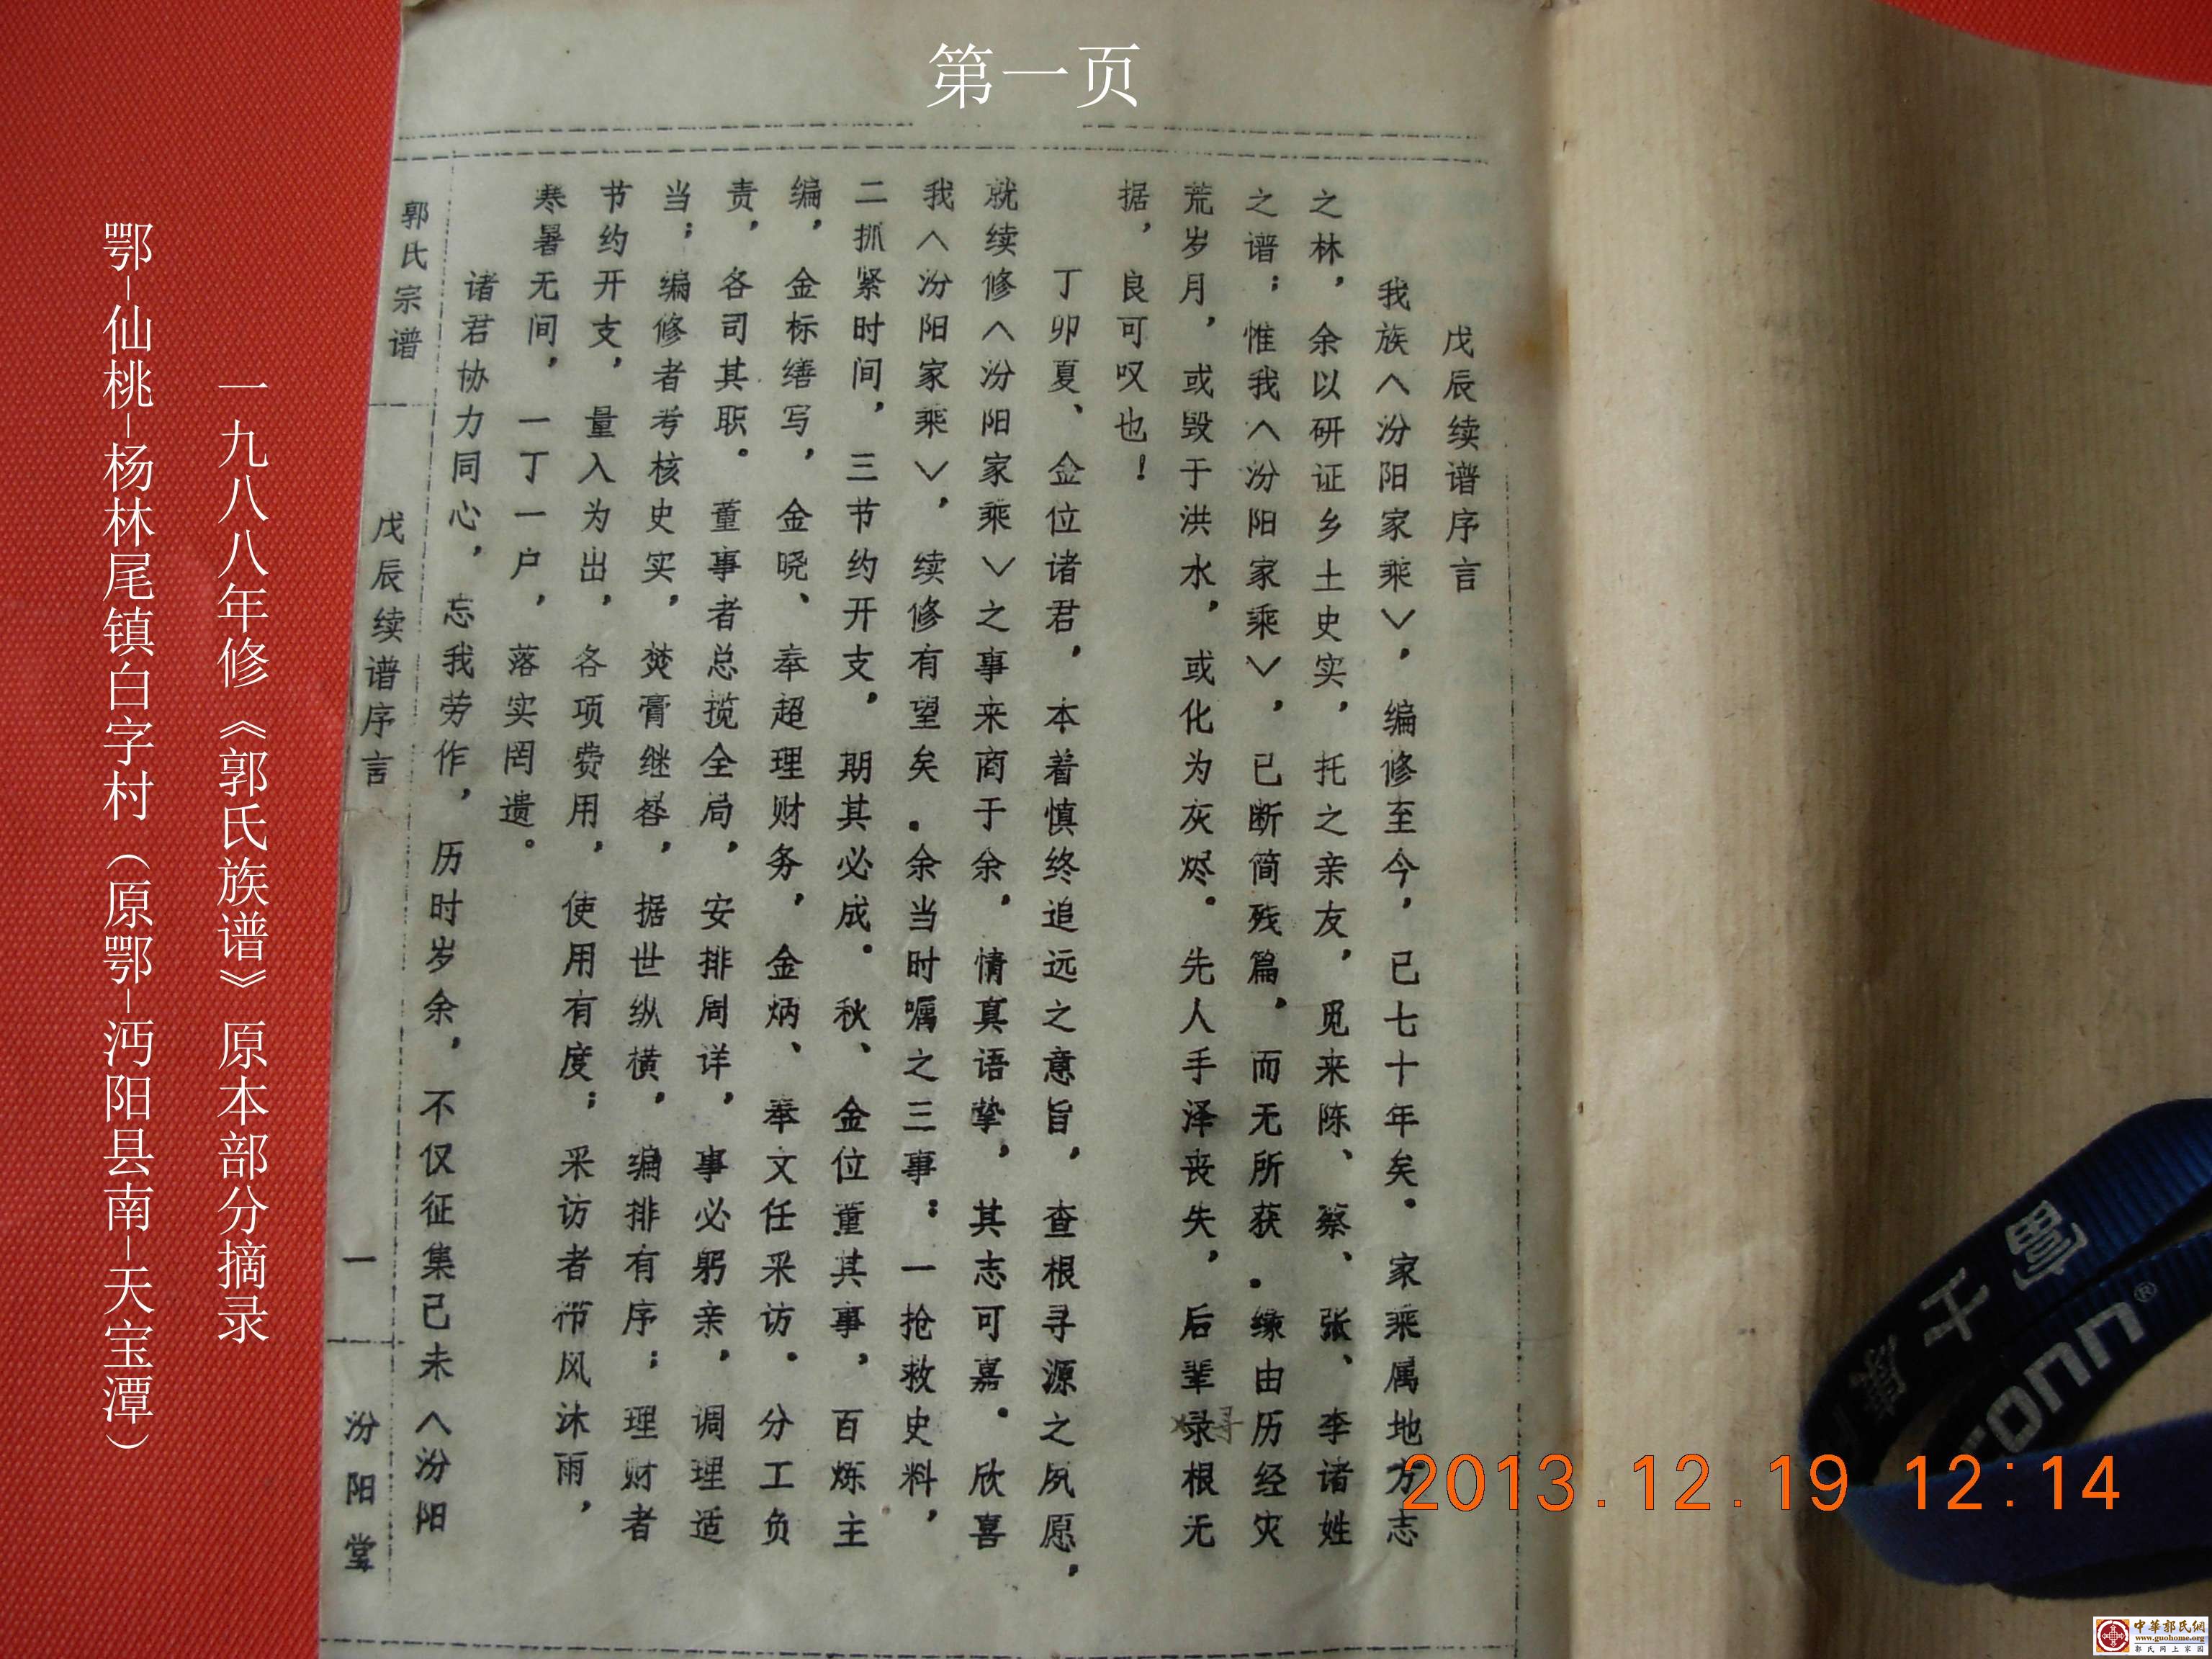 第一页
戊辰续谱序言
我族〈汾阳家乘〉，编修至今，已七十年矣。家乘属地方志
之林，余以研证乡土史实，托之亲友，觅来陈、蔡、张、李诸姓
之谱；惟我〈汾阳家乘〉，已断简残篇，而无所获．缘由历经灾
荒岁月，或毁于洪水，或化为灰烬。先人手泽丧失，后辈录根无
寻
据，良可叹也！
丁卯夏、金位诸君，本着慎终追远之意旨，查根寻源之夙愿，
就续修〈汾阳家乘〉之事来商于余，情真语挚，其志可嘉．欣喜
我〈汾阳家乘〉，续修有望矣．余当时嘱之三事：一抢救史料，
二抓紧时间，三节约开支，期其必成。秋、金位董其事，百炼主
编，金标缮写，金晓、奉超理财务，金炳、奉文任采访．分工负
责，各司其职。董事者总揽全局，安排周详，事必躬亲，调理适
当；编修者考核史实，焚膏继晷，据世纵横，编排有序；理财者
节约开支，量入为出，各项费用，使用有度；采访者栉风沐雨，
寒暑无间，一丁一户，落实罔遗。
诸君协力同心，忘我劳作，历时岁余，不仅征集已未〈汾阳
郭氏宗谱 戊辰续谱序言 一 汾阳堂
一九八八年修《郭氏族谱》原本部分摘录
鄂-仙桃-杨林尾镇白字村（原鄂-沔阳县南-天宝潭）
2013.12.19 12:14
中華郭氏網
www.guohome.org
郭氏网上家园